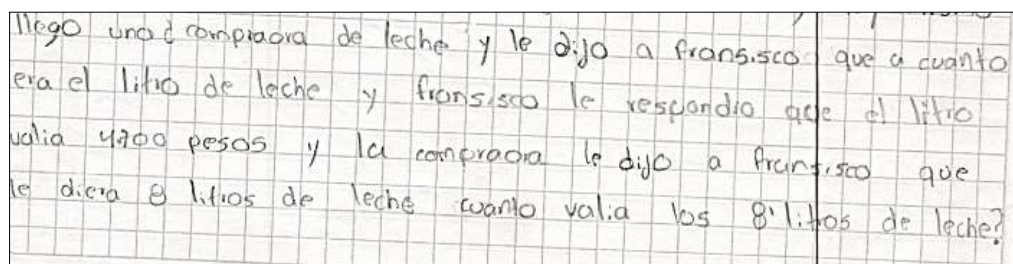 llego una d compradora de leche y le dijo a fransisco que a cuanto
era el litro de leche y fransisco le respondio que el litro
valia 4700 pesos y la compradora le dijo a fransisco que
le diera 8 litros de leche cuanto valia los 8 litros de leche?